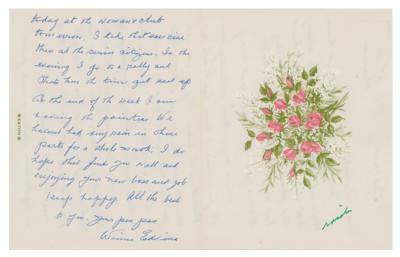 today at the woman's club
tomorrow. I take that exercise
then at the senior citizens. In the
evening I go to a rally and
that's how the time get used up
At the end of the week I am
having the painters We
haven't had any rain in these
parts for a whole week. I do
hope this finds you well and
enjoying your new boss and job
keep happy. All the best
to you, your pen
Winnie